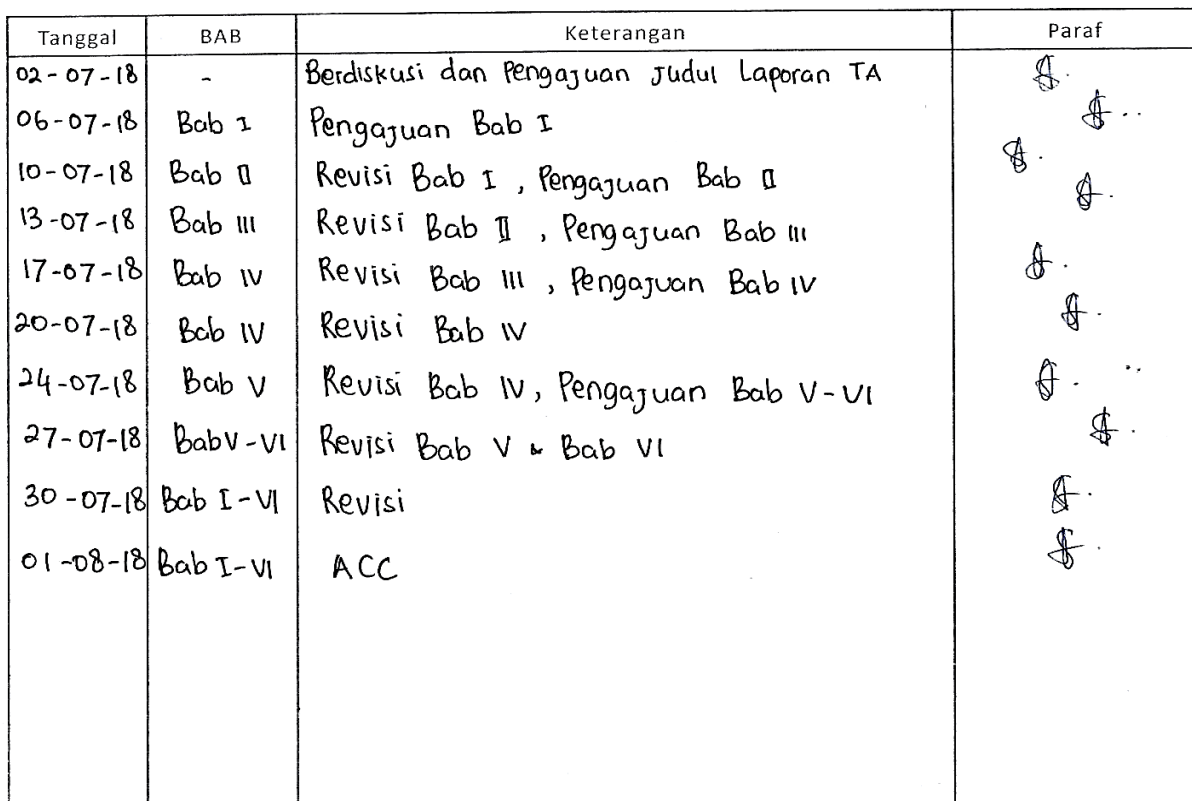 Tanggal BAB Keterangan Paraf
02-07-18 - Berdiskusi dan Pengajuan Judul Laporan TA
06-07-18 Bab I Pengajuan Bab I
10-07-18 Bab II Revisi Bab I, Pengajuan Bab II
13-07-18 Bab III Revisi Bab II, Pengajuan Bab III
17-07-18 Bab IV Revisi Bab III, Pengajuan Bab IV
20-07-18 Bab IV Revisi Bab IV
24-07-18 Bab V Revisi Bab IV, Pengajuan Bab V-VI
27-07-18 Bab V-VI Revisi Bab V & Bab VI
30-07-18 Bab I-VI Revisi
01-08-18 Bab I-VI ACC